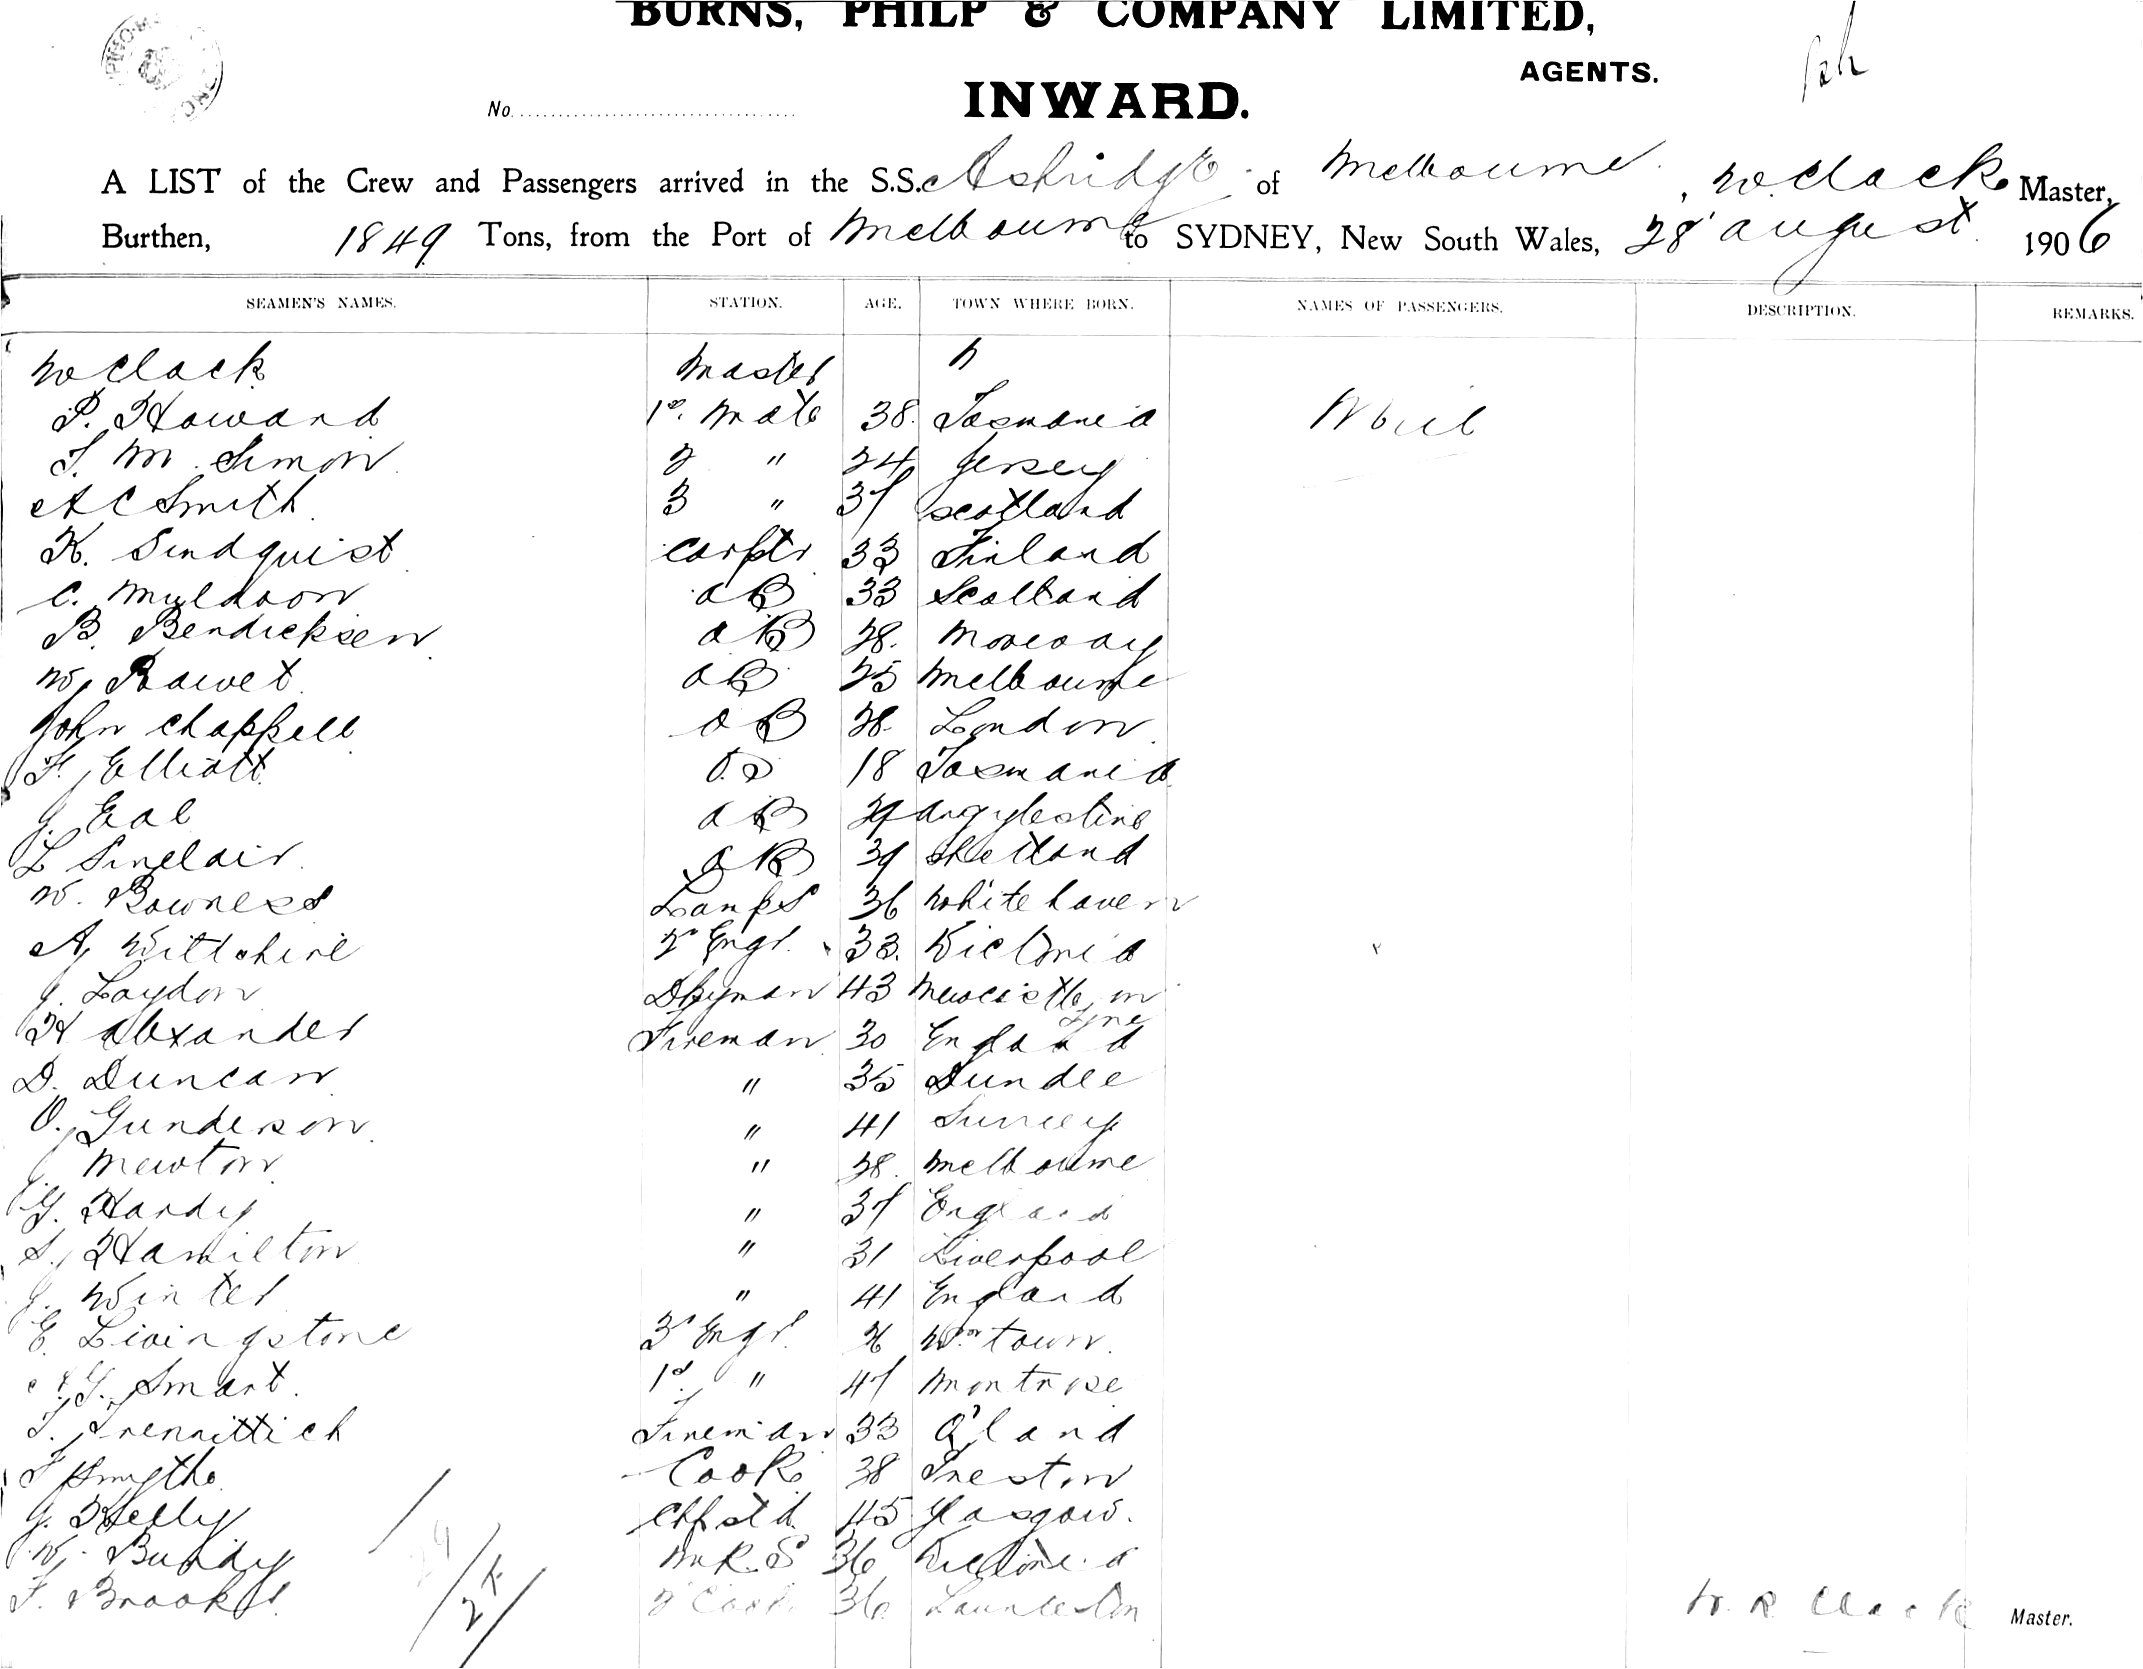 BURNS, PHILP & COMPANY LIMITED,
AGENTS.
No.
INWARD.
A LIST of the Crew and Passengers arrived in the S.S. Ashridge of Melbourne, W Clack Master,
Burthen, 1849 Tons, from the Port of Melbourne to SYDNEY, New South Wales, 28 August 1906
SEAMEN'S NAMES. STATION. AGE. TOWN WHERE BORN. NAMES OF PASSENGERS. DESCRIPTION. REMARKS.
W Clack Master
P. Howard 1st Mate 38 Tasmania
T. M. Simon 2 " 24 Jersey
A C Smith 3 " 37 Scotland
K. Sindquist Carptr 33 Finland
C. Muldoon AB 33 Scotland
B. Bendicksen AB 28. Norway
W. AB 25 Melbourne
John Chappell AB 28 London
F. Elliott O.S 18 Tasmania
J. AB 29
L Sinclair AB 39 Shetland
W. Bowness Lamps 36 Whitehaven
A. Wiltshire 2 Engr. 33. Victoria
J. Laydon Dkyman 43 Newcastle on Tyne
H Alexander Fireman 30 England
D. Duncan " 35 Dundee
O. Gunderson " 41 Surrey
J. Newton " 28. Melbourne
G. Hardy " 37 England
S. Hamilton " 31 Liverpool
J. Winter " 41 England
E. Livingstone 3rd Engr. 26 Wmtown.
G. Smart 1st " 47 Montrose
T. Fireman 33 A'land
F Smythe Cook 38 Preston
J. Kelly Chf Std. 45 Glasgow.
W. Bundy M.R.S 36 Victoria
F. Brooks 2 Cook 36 Launceston
W. R Clack Master.